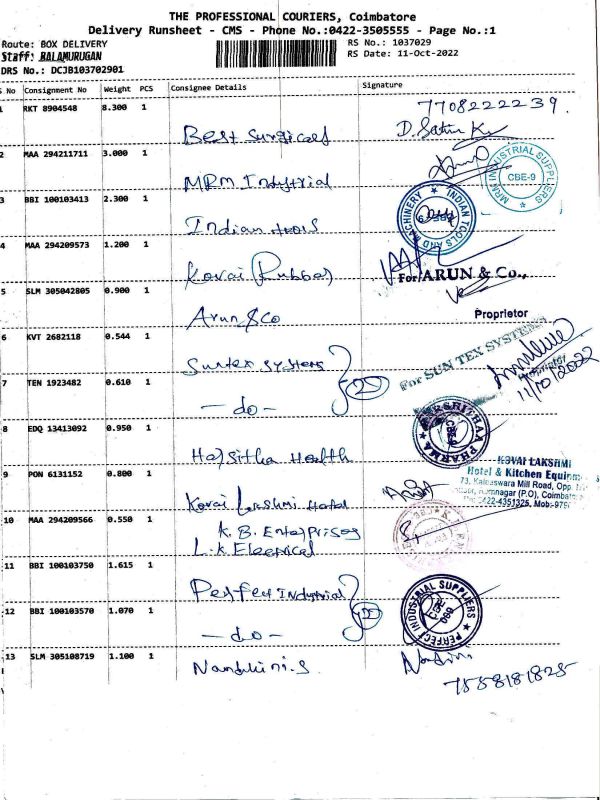 THE PROFESSIONAL COURIERS, Coimbatore
Delivery Runsheet - CMS - Phone No.:0422-3505555 - Page No.:1
Route: BOX DELIVERY
RS No.: 1037029
Staff: BALAMURUGAN
RS Date: 11-Oct-2022
DRS No.: DCJB103702901
S No Consignment No Weight PCS Consignee Details Signature
1 RKT 8904548 8.300 1
7708222239.
Best Surgicals
2 MAA 294211711 3.000 1
MRM Industrial
MRM INDUSTRIAL SUPPLIERS
CBE-9
3 BBI 100103413 2.300 1
Indian tools
INDIAN TOOLS AND MACHINERY
4 MAA 294209573 1.200 1
Kovai Rubber
For ARUN & Co.,
5 SLM 305042805 0.900 1
Arun & Co
Proprietor
6 KVT 2682118 0.544 1
Suntex Systems
For SUN TEX SYSTEMS
Proprietor
11/10/2022
7 TEN 1923482 0.610 1
- do -
2
8 EDQ 13413092 0.950 1
Harsitha Health
PHARMA
CBE-9
9 PON 6131152 0.800 1
Kovai Lakshmi Hotel
KOVAI LAKSHMI
Hotel & Kitchen Equipm
73, Kaleeswara Mill Road, Opp.
Ramnagar (P.O), Coimbat
0422-4351325, Mob:
10 MAA 294209566 0.550 1
K. B. Enterprises
L.K Electrical
11 BBI 100103750 1.615 1
Perfect Industrial
12 BBI 100103570 1.070 1
- do -
PERFECT INDUSTRIAL SUPPLIERS
13 SLM 305108719 1.100 1
Nandhini.S
Nandini
7558181825